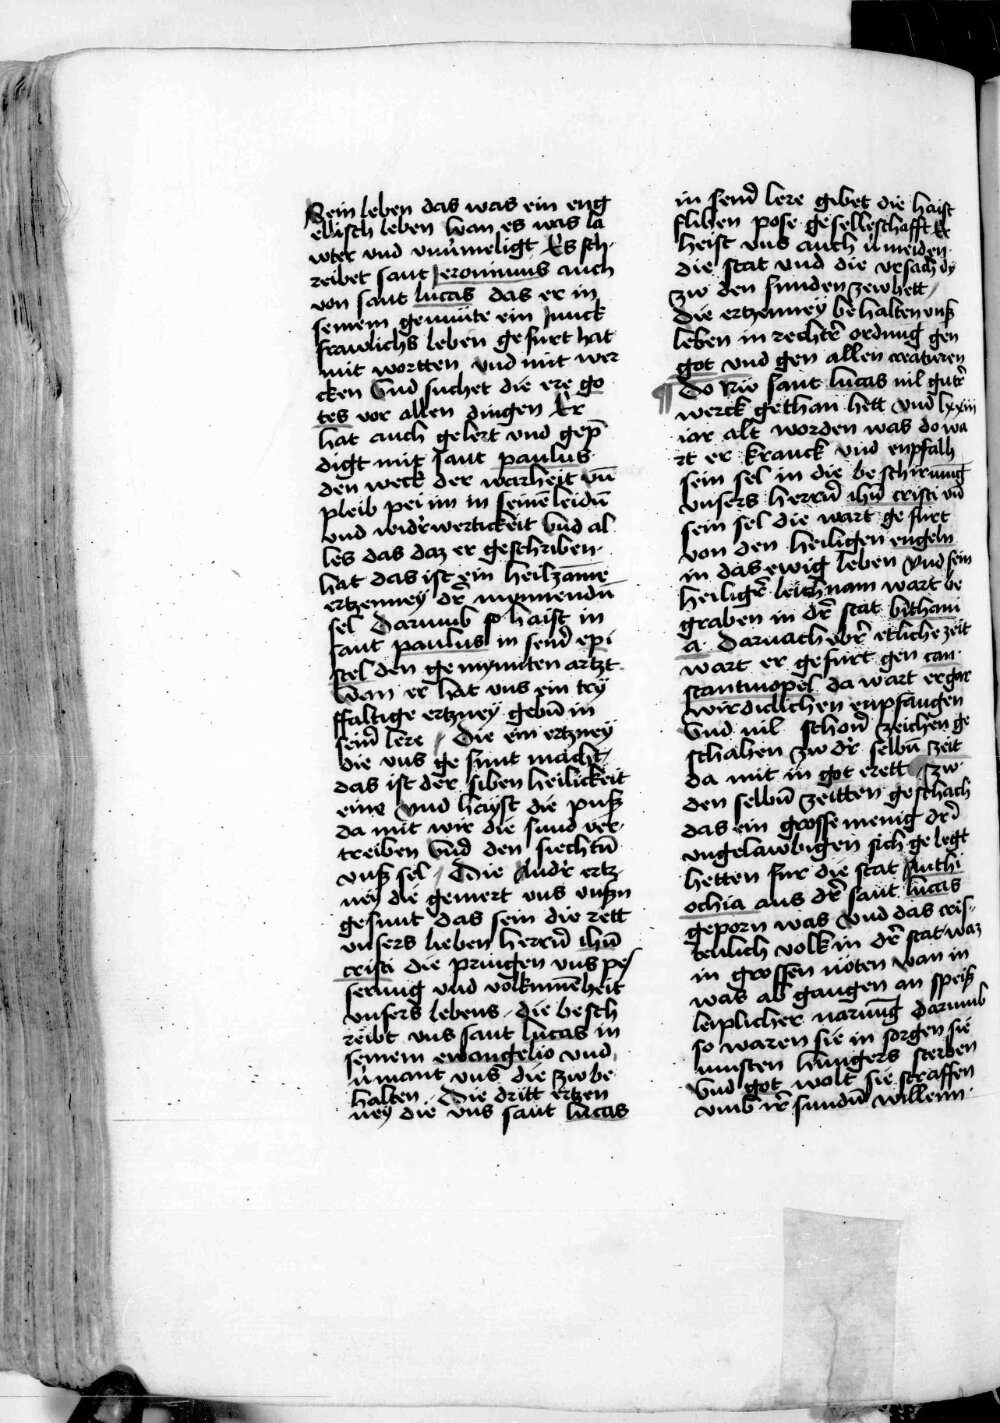 Sein leben das was ein eng
ellisch leben wan es was la
wter und vnuͤmeligt Es sch¬
reibet sant Jeronimus auch
von sant lucas das er in
seinem gemuͤte ein Junck
frawlichs leben gefurt hat
mit wortten und mit wer
cken Und suchet die ere go
tes vor allen dingen Er
hat auch gelert und gep̄
digt mit sant paulus
den weck der warheit vn̄
pleib pei im in seinē leidn̄
und widʾwertickeit Und al
les das daz er geschriben
hat das ist ein heilzāme
ertzenney dʾr mynnendn̄
sel Darumb so haist in
sant paulus in seinʾ epi
stel den gemynten artzt
Wan er hat uns ein try
ffaltige ertzney gebn̄ in
seinʾ lere / Die ein ertzney
die uns gesunt macht
das ist der siben heilickeit
eine und hayst die puß
da mit wir die sund ver¬
treiben Und den siechtū
unß sel / Die Andʾr ertz
ney die gemert uns unßn
gesunt das sein die rett
unsers lieben herrn̄ ihū
cristi die pringen uns pes
serung und volkumēheit
unsers lebens / die besch
reibt uns sant lucas in
seinem ewangelio und
uͤmant uns die zw be
halten / Die dritt ertzen
ney die uns sant lucas
in senʾ lere gibet die haist
flihen pose geselleschafft Er
heist uns auch uͤmeiden
die stat und die ursach dy
zw den sunden zewhett /
die ertzenney behalten unß
leben in rechtʾr ordnung gen
got und gen allen creaturen
¶ Do Nw sant lucas vil gutʾr
werck gethan hett und lxxiii
iar alt worden was do wa
rt er kranck und enpfalh
sein sel in die beschirmūg
unsers herrn̄ ihū cristi vn̄
sein sel die wart gefurt
von den heiligen engeln
in das ewig leben Und sein
heiligʾr leichnam wart be
graben in dʾr stat bithani
a / Darnach ubʾr etliche zeit
wart er gefurt gen con¬
stantinopel da wart er gar
wirdiclichen enpfangen
Und vil schonʾ zeichen ge
schahen zw dʾr selbn̄ zeit
da mit in got erett / zw
den selbn̄ zeitten geschach
das ein grosse menig dʾr
ungelawbigen sich gelegt
hetten fur die stat Anthi
ochia aus dʾr sant lucas
geporn was Und das cris¬
tenlich volk in dʾr stat waz
in grossen nöten wan in
was ab gangen an speiß
leiplicher narūng darumb
so waren sie in sorgen sie
musten hungers sterben
Und got wolt sie straffen
umb irʾ sundn̄ willenn